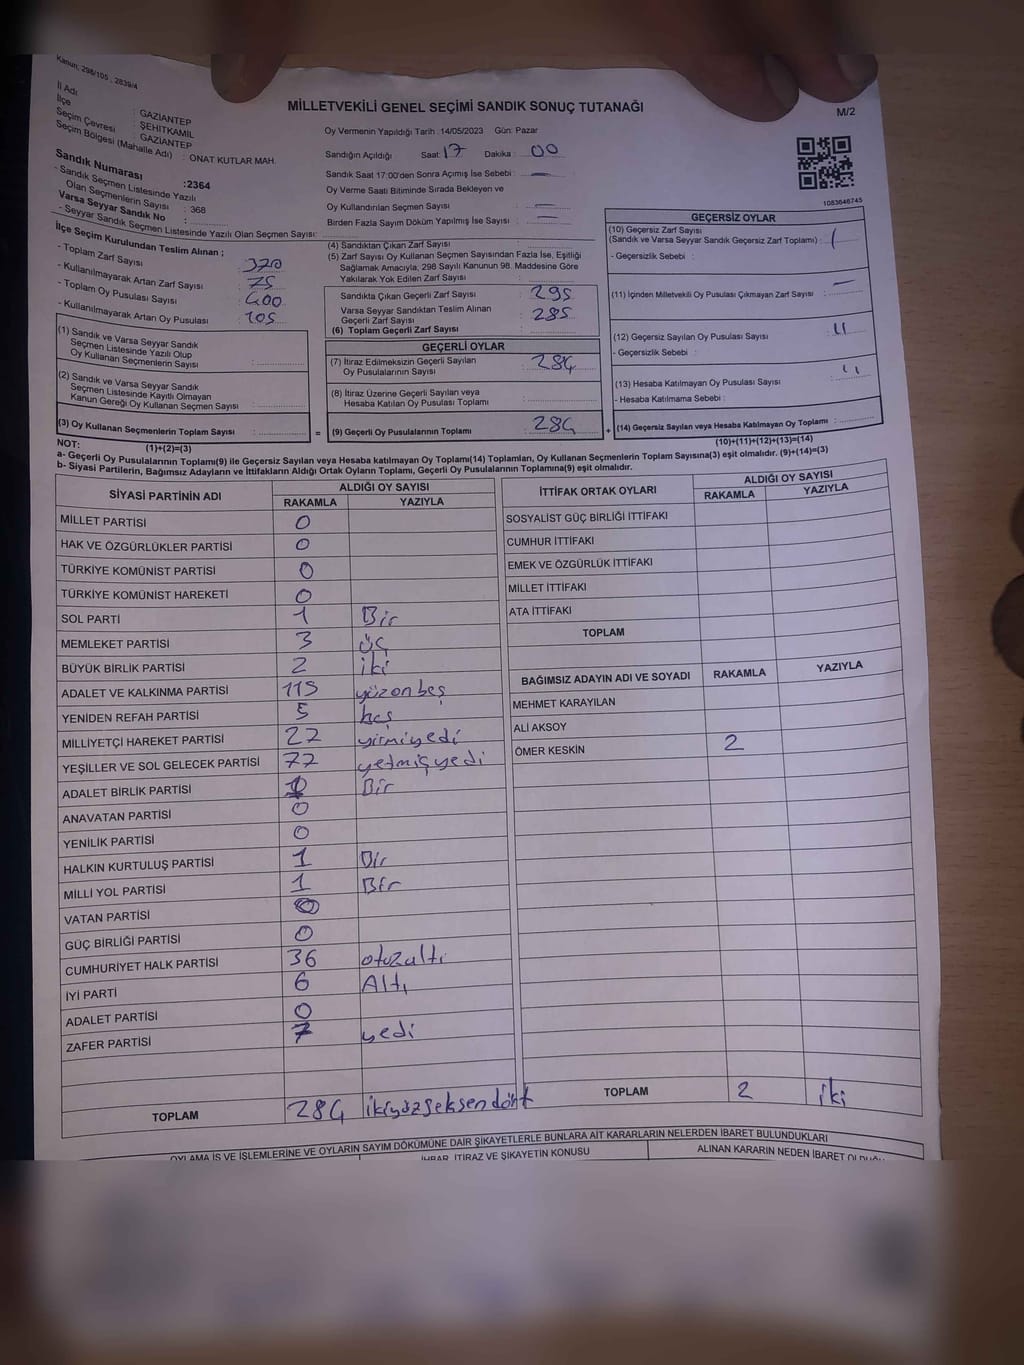 Kanun: 298/105 , 2839/4
MİLLETVEKİLİ GENEL SEÇİMİ SANDIK SONUÇ TUTANAĞI
M/2
İl Adı : GAZİANTEP
İlçe : ŞEHİTKAMİL
Seçim Çevresi : GAZİANTEP
Seçim Bölgesi (Mahalle Adı) : ONAT KUTLAR MAH.
Sandık Numarası :2364
- Sandık Seçmen Listesinde Yazılı
Olan Seçmenlerin Sayısı : 368
Varsa Seyyar Sandık No :
- Seyyar Sandık Seçmen Listesinde Yazılı Olan Seçmen Sayısı:
Oy Vermenin Yapıldığı Tarih :14/05/2023 Gün: Pazar
Sandığın Açıldığı Saat: 17 Dakika : 00
Sandık Saat 17:00'den Sonra Açımış İse Sebebi : —
Oy Verme Saati Bitiminde Sırada Bekleyen ve
Oy Kullandırılan Seçmen Sayısı :
Birden Fazla Sayım Döküm Yapılmış İse Sayısı :
1083646745
İlçe Seçim Kurulundan Teslim Alınan ;
- Toplam Zarf Sayısı : 370
- Kullanılmayarak Artan Zarf Sayısı : 75
- Toplam Oy Pusulası Sayısı : 400
- Kullanılmayarak Artan Oy Pusulası : 105
(1) Sandık ve Varsa Seyyar Sandık
Seçmen Listesinde Yazılı Olup
Oy Kullanan Seçmenlerin Sayısı :
(2) Sandık ve Varsa Seyyar Sandık
Seçmen Listesinde Kayıtlı Olmayan
Kanun Gereği Oy Kullanan Seçmen Sayısı :
(3) Oy Kullanan Seçmenlerin Toplam Sayısı :
(1)+(2)=(3)
(4) Sandıktan Çıkan Zarf Sayısı :
(5) Zarf Sayısı Oy Kullanan Seçmen Sayısından Fazla İse, Eşitliği
Sağlamak Amacıyla, 298 Sayılı Kanunun 98. Maddesine Göre
Yakılarak Yok Edilen Zarf Sayısı :
Sandıkta Çıkan Geçerli Zarf Sayısı : 295
Varsa Seyyar Sandıktan Teslim Alınan
Geçerli Zarf Sayısı : 285
(6) Toplam Geçerli Zarf Sayısı :
GEÇERLİ OYLAR
(7) İtiraz Edilmeksizin Geçerli Sayılan
Oy Pusulalarının Sayısı : 284
(8) İtiraz Üzerine Geçerli Sayılan veya
Hesaba Katılan Oy Pusulası Toplamı :
= (9) Geçerli Oy Pusulalarının Toplamı : 284 +
GEÇERSİZ OYLAR
(10) Geçersiz Zarf Sayısı
(Sandık ve Varsa Seyyar Sandık Geçersiz Zarf Toplamı) :
- Geçersizlik Sebebi :
(11) İçinden Milletvekili Oy Pusulası Çıkmayan Zarf Sayısı : —
(12) Geçersiz Sayılan Oy Pusulası Sayısı :
- Geçersizlik Sebebi :
(13) Hesaba Katılmayan Oy Pusulası Sayısı :
- Hesaba Katılmama Sebebi :
(14) Geçersiz Sayılan veya Hesaba Katılmayan Oy Toplamı :
(10)+(11)+(12)+(13)=(14)
NOT:
a- Geçerli Oy Pusulalarının Toplamı(9) ile Geçersiz Sayılan veya Hesaba Katılmayan Oy Toplamı(14) Toplamları, Oy Kullanan Seçmenlerin Toplam Sayısına(3) eşit olmalıdır. (9)+(14)=(3)
b- Siyasi Partilerin, Bağımsız Adayların ve İttifakların Aldığı Ortak Oyların Toplamı, Geçerli Oy Pusulalarının Toplamına(9) eşit olmalıdır.
SİYASİ PARTİNİN ADI ALDIĞI OY SAYISI
RAKAMLA YAZIYLA
MİLLET PARTİSİ 0
HAK VE ÖZGÜRLÜKLER PARTİSİ 0
TÜRKİYE KOMÜNİST PARTİSİ 0
TÜRKİYE KOMÜNİST HAREKETİ 0
SOL PARTİ 1 Bir
MEMLEKET PARTİSİ 3 üç
BÜYÜK BİRLİK PARTİSİ 2 iki
ADALET VE KALKINMA PARTİSİ 115 yüzonbeş
YENİDEN REFAH PARTİSİ 5 beş
MİLLİYETÇİ HAREKET PARTİSİ 27 yirmiyedi
YEŞİLLER VE SOL GELECEK PARTİSİ 77 yetmişyedi
ADALET BİRLİK PARTİSİ 1 Bir
ANAVATAN PARTİSİ 0
YENİLİK PARTİSİ 0
HALKIN KURTULUŞ PARTİSİ 1 Bir
MİLLİ YOL PARTİSİ 1 Bir
VATAN PARTİSİ 0
GÜÇ BİRLİĞİ PARTİSİ 0
CUMHURİYET HALK PARTİSİ 36 otuzaltı
İYİ PARTİ 6 Altı
ADALET PARTİSİ 0
ZAFER PARTİSİ 7 yedi
TOPLAM 284 ikiyüzseksendört
İTTİFAK ORTAK OYLARI ALDIĞI OY SAYISI
RAKAMLA YAZIYLA
SOSYALİST GÜÇ BİRLİĞİ İTTİFAKI
CUMHUR İTTİFAKI
EMEK VE ÖZGÜRLÜK İTTİFAKI
MİLLET İTTİFAKI
ATA İTTİFAKI
TOPLAM
BAĞIMSIZ ADAYIN ADI VE SOYADI RAKAMLA YAZIYLA
MEHMET KARAYILAN
ALİ AKSOY
ÖMER KESKİN 2
TOPLAM 2 iki
OYLAMA İŞ VE İŞLEMLERİNE VE OYLARIN SAYIM DÖKÜMÜNE DAİR ŞİKAYETLERLE BUNLARA AİT KARARLARIN NELERDEN İBARET BULUNDUKLARI
İHBAR, İTİRAZ VE ŞİKAYETİN KONUSU ALINAN KARARIN NEDEN İBARET OLDUĞU